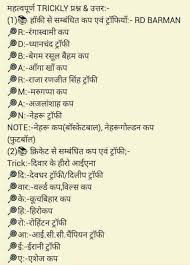 महत्वपूर्ण TRICKLY प्रश्न & उत्तर:-
(1)📚 हॉकी से सम्बंधित कप एवं ट्रॉफियाँ:- RD BARMAN
🔎R:-रंगास्वामी कप
🔎D:-ध्यानचंद ट्रॉफी
🔎B:-बेगम रसूल बैहम कप
🔎A:-आँगा खाँ कप
🔎R:-राजा रणजीत सिंह ट्रॉफी
🔎M:-मरुगप्पा कप
🔎A:-अजलांशाह कप
🔎N:-नेहरू ट्रॉफी
NOTE:-नेहरू कप(बॉस्केटबाल), नेहरूगोल्डन कप
(फुटबॉल)
(2)📚 क्रिकेट से सम्बंधित कप एवं ट्रॉफी;-
Trick:-दिवार के हीरो आईएना
🔎दि:-देवधर ट्रॉफी/दिलीप ट्रॉफी
🔎वार:-वर्ल्ड कप,विल्स कप
🔎के:-कूचबिहार कप
🔎हि:-हिरोकप
🔎रो:-रोहिंटन ट्रॉफी
🔎आ:-आई.सी.सी.चैंपियन ट्रॉफी
🔎ई:-ईरानी ट्रॉफी
🔎ए:-एशेज कप